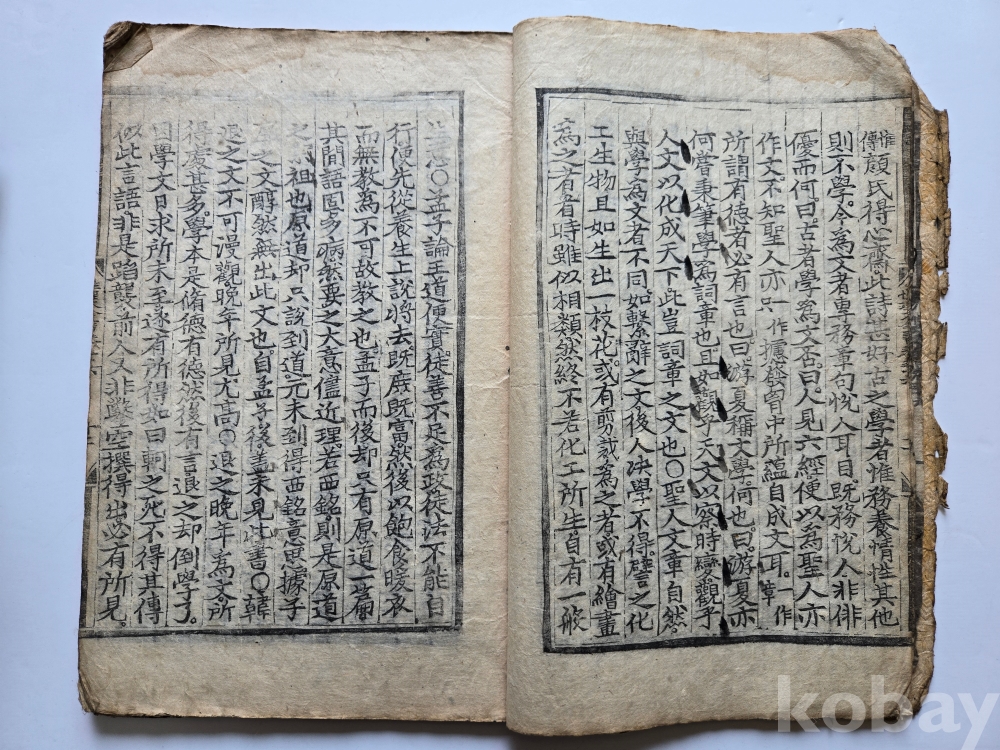 惟傳顔氏得心齋此詩甚好古之學者惟務養情性其他
則不學今爲文者專務章句悅人耳目既務悅人非俳
優而何曰古者學爲文否曰人見六經便以爲聖人亦
作文不知聖人亦只一作攄發胷中所蘊自成文耳一作章
所謂有德者必有言也曰游夏稱文學何也曰游夏亦
何嘗秉筆學爲詞章也且如觀乎天文以察時變觀乎
人文以化成天下此豈詞章之文也○聖人文章自然
與學爲文者不同如繫辭之文後人決學不得譬之化
工生物且如生出一枝花或有剪裁爲之者或有繪畫
爲之者者時雖似相類然終不若化工所生自有一般
生意○孟子論王道便實徒善不足爲政徒法不能自
行便先從養生上說將去既庶既富然後以飽食暖衣
而無教爲不可故教之也孟子而後却只有原道一篇
其間語固多病然要之大意儘近理若西銘則是原道
之宗祖也原道却只說到道元未到得西銘意思據子
厚之文醇然無出此文也自孟子後盖未見此書○韓
退之文不可漫觀晚年所見尤高○退之晚年爲文所
得處甚多學本是脩德有德然後有言退之却倒學了
因學文日求所未至遂有所得如曰軻之死不得其傳
似此言語非是蹈襲前人又非鑿空撰得出必有所見
kobay